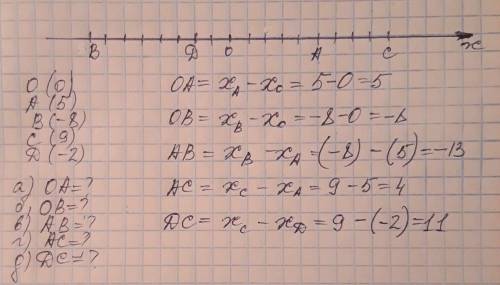 B D O A C x
O (0)
A (5)
B (-8)
C (9)
D (-2)
a) OA = ?
б) OB = ?
в) AB = ?
г) AC = ?
д) DC = ?
OA = x_A - x_O = 5 - 0 = 5
OB = x_B - x_O = -8 - 0 = -8
AB = x_B - x_A = (-8) - (5) = -13
AC = x_C - x_A = 9 - 5 = 4
DC = x_C - x_D = 9 - (-2) = 11